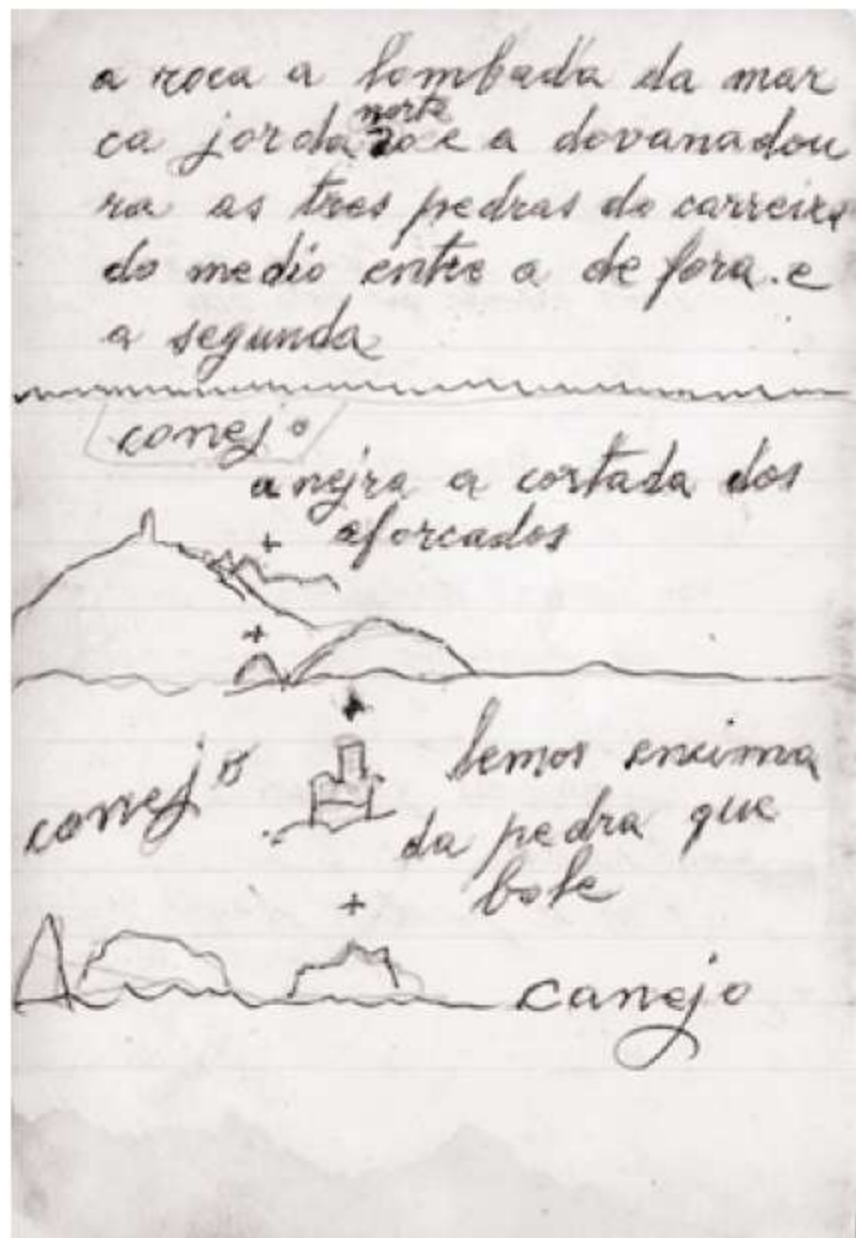 a roca a lombada da mar
norte
ca jorda e a dovanadou
ra as tres pedras do carreiro
do medio entre a de fora. e
a segunda
conejo
a nejra a cortada dos
aforcados
conejo
lemos encima
da pedra que
bote
canejo